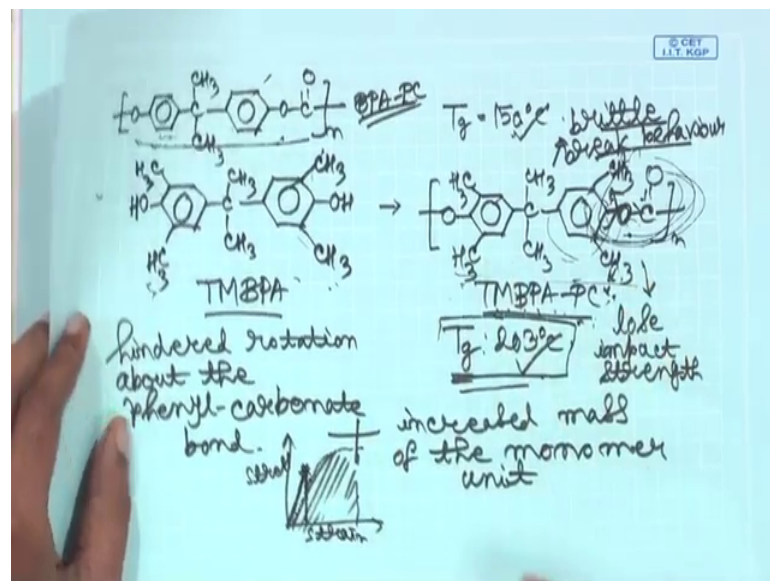 © CET
I.I.T. KGP
CH3
O
O C O C
CH3
n
BPA-PC
Tg = 150°C
brittle
break behaviour
H3C
CH3
CH3
HO C OH
H3C
CH3
CH3
→
H3C
CH3
CH3
O
O C O C
H3C
CH3
CH3
n
TMBPA
TMBPA-PC
Tg: 203°C
lose
impact
strength
hindered rotation
about the
phenyl-carbonate
bond.
+ increased mass
of the monomer
unit
strain